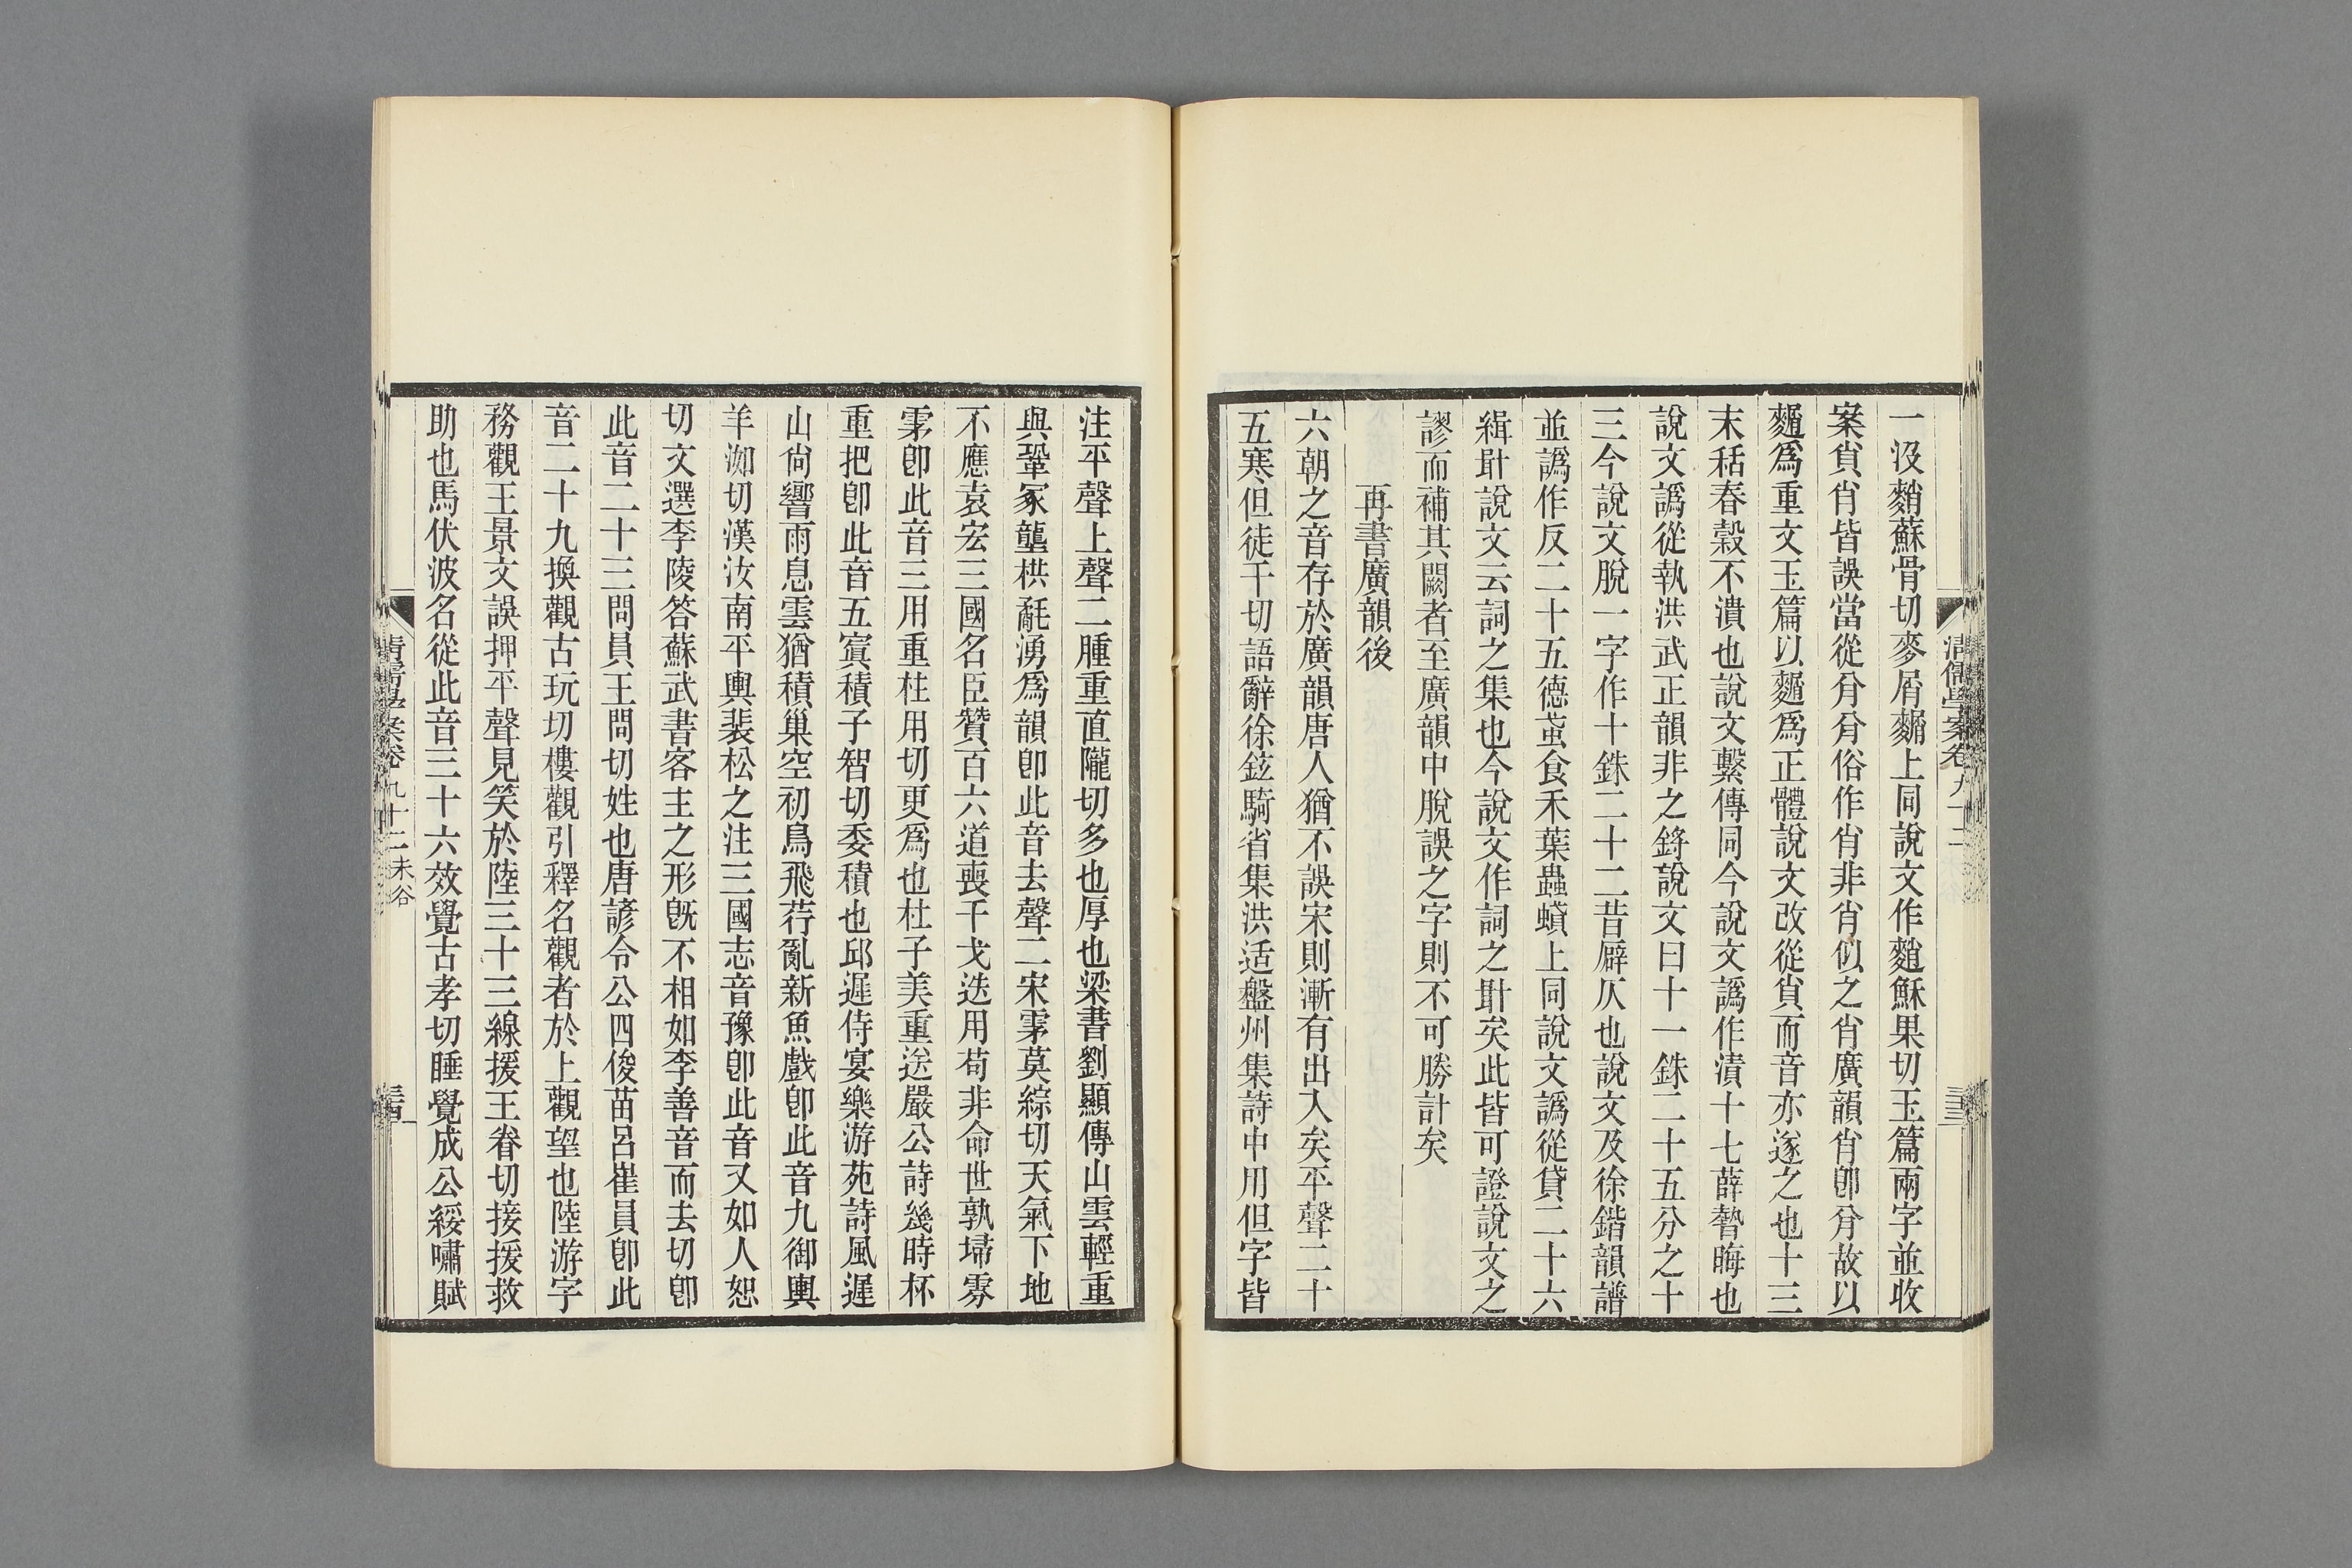 清儒學案卷九十二
三三
一没䴛蘇骨切麥屑䴛上同說文作䴹穌果切玉篇兩字並收
案𧴪肖皆誤當從𠈌𠈌俗作肖非肖似之肖廣韻肖卽𠈌故以
爲重文玉篇以爲正體說文改從𧴪而音亦遂之也十三
末秳舂穀不潰也說文繫傳同今說文譌作漬十七薛暬晦也
說文譌從執洪武正韻非之鋝說文曰十一銖二十五分之十
三今說文脫一字作十銖二十二昔㢠仄也說文及徐鍇韻譜
並譌作反二十五德蟘食禾葉蟲蟘上同說文譌從貸二十六
緝卙說文云詞之集也今說文作詞之卙矣此皆可證說文之
謬而補其闕者至廣韻中脫誤之字則不可勝計矣
再書廣韻後
六朝之音存於廣韻唐人猶不誤宋則漸有出入矣平聲二十
五寒但徒干切語辭徐鉉騎省集洪适盤州集詩中用但字皆
注平聲上聲二腫重直隴切多也厚也梁書劉顯傳山雲輕重
與鞏冢壟栱𣬛湧爲韻卽此音去聲二宋雺莫綜切天氣下地
不應袁宏三國名臣贊百六道喪干戈迭用苟非命世孰埽雰
雺卽此音三用重柱用切更爲也杜子美重送嚴公詩幾時杯
重把卽此音五寘積子智切委積也邱遲侍宴樂游苑詩風遲
山尙響雨息雲猶積巢空初鳥飛荇亂新魚戲卽此音九御輿
羊洳切漢汝南平輿裴松之注三國志音豫卽此音又如人恕
切文選李陵答蘇武書客主之形旣不相如李善音而去切卽
此音二十三問員王問切姓也唐諺令公四俊苗呂崔員卽此
音二十九換觀古玩切樓觀引釋名觀者於上觀望也陸游字
務觀王景文誤押平聲見笑於陸三十三線援王眷切接援救
助也馬伏波名從此音三十六效覺古孝切睡覺成公綏嘯賦
清儒學案卷九十二 未谷